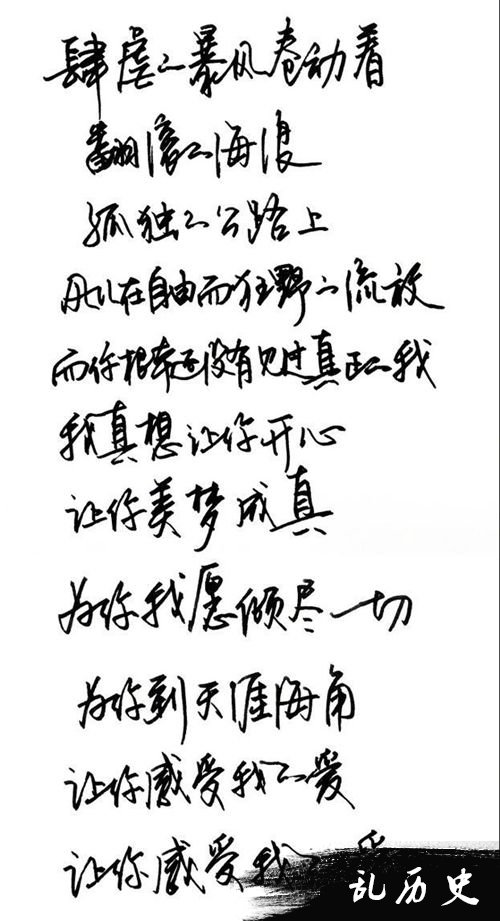 肆虐的暴风卷动着
翻滚的海浪
孤独的公路上
在自由而狂野的流放
而你根本还没有见过真正的我
我真想让你开心
让你美梦成真
为你我愿倾尽一切
为你到天涯海角
让你感受我的爱
让你感受我的爱
乱历史